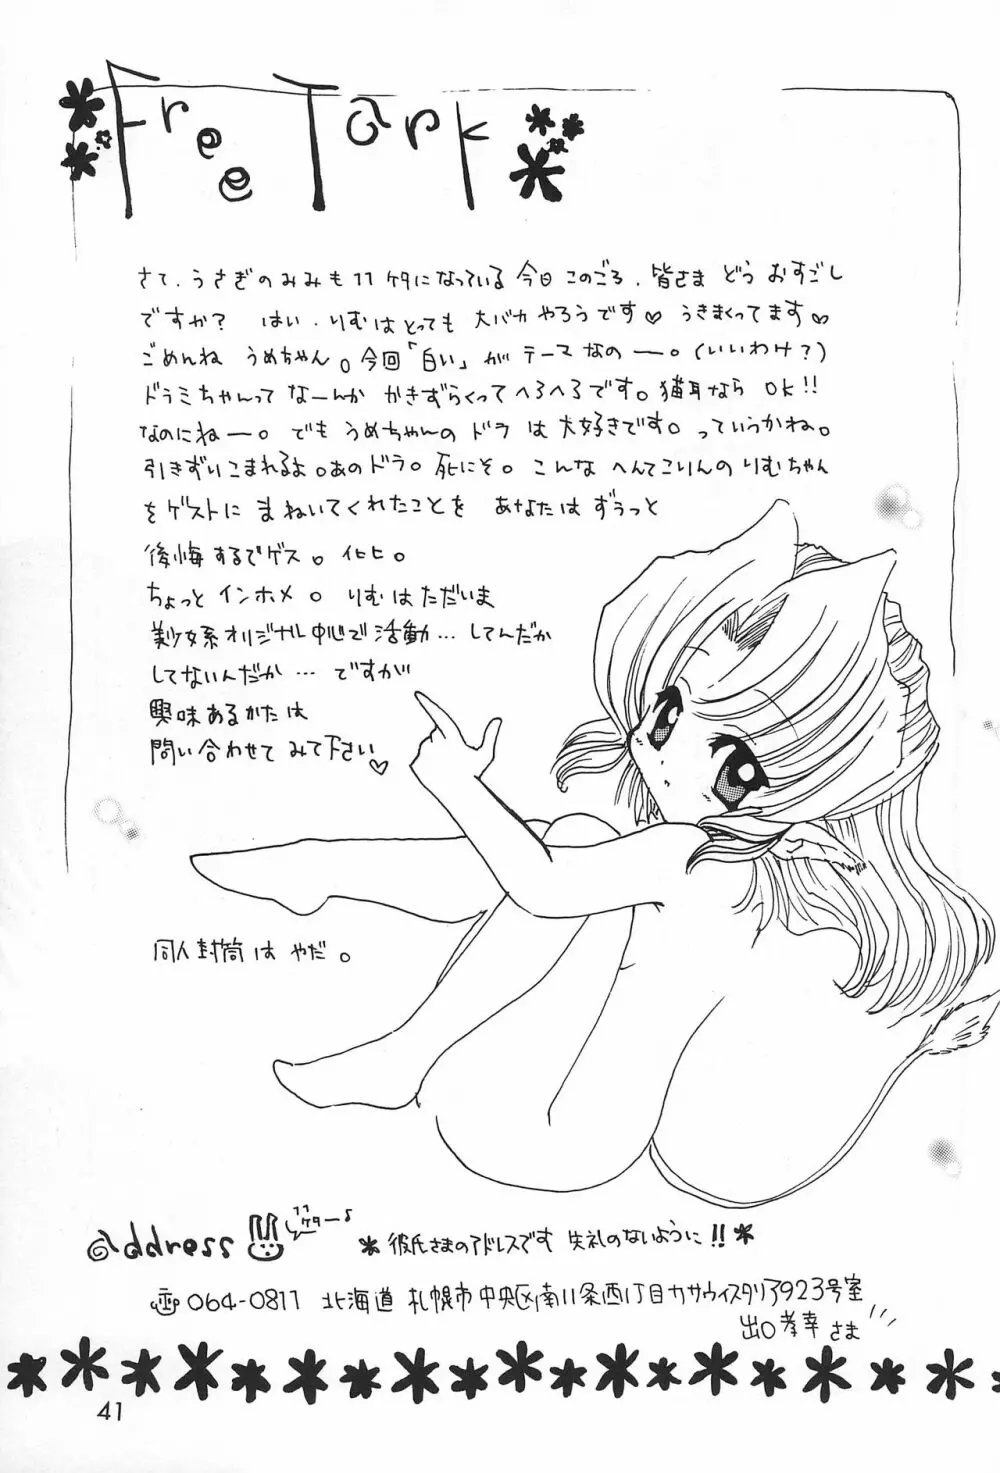 Free Tark
さて、うさぎのみみも11ケタになっている今日このごろ、皆さま どう おすごし
ですか? はい、りむはとっても 大バカ やろうです♡ うきまくってます♡
ごめんね うめちゃん。今回「白い」がテーマなのー。(いいわけ?)
ドラミちゃんって なーんか かきずらくってへろへろです。猫耳なら OK!!
なのにねー。でも うめちゃんの ドラ は大好きです。っていうかね。
引きずいこまれるよ。あのドラ。死にそ。こんな へんてこりんの りむちゃん
をゲストに まねいてくれたことを あなたは ずうっと
後悔するでゲス。イヒヒ。
ちょっと インホメ。 りむはただいま
美少女系オリジナル中心で活動…してんだか
してないんだか…ですが
興味あるかたは
問い合わせて みて下さい♡
同人封筒は やだ。
@ddress
11ケター
*彼氏さまのアドレスです 失礼のないように!!*
〠064-0811 北海道 札幌市 中央区南11条西1丁目カサウィスタリア923号室
出口孝幸さま
41